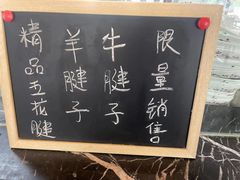 限量销售
牛腱子
羊腱子
精品五花腱